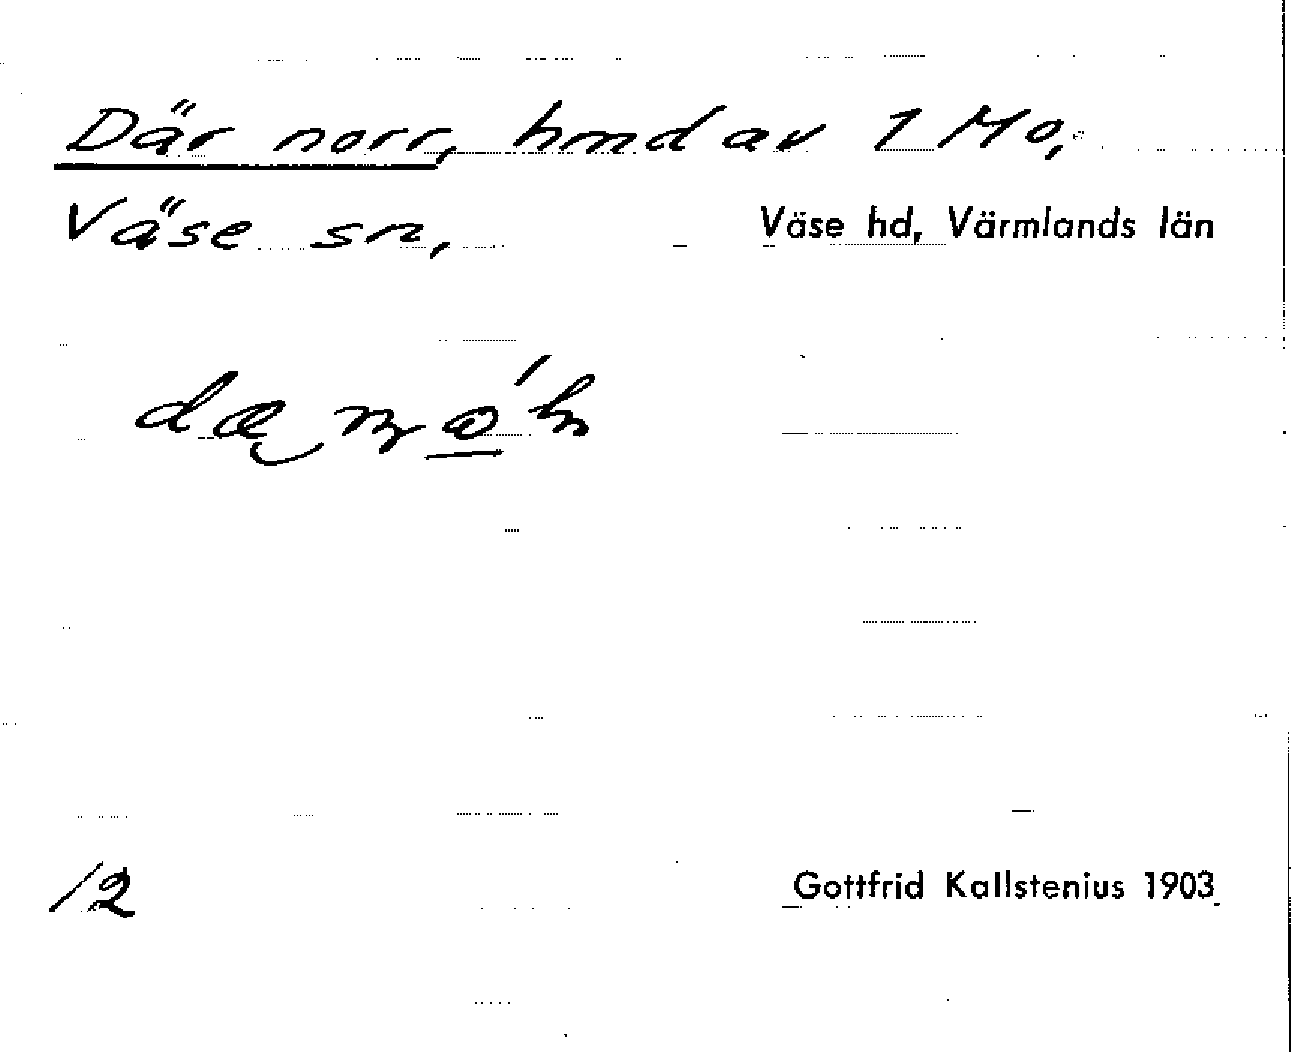 Där norr, hmd av 1 Mo,
Väse sn, Väse hd, Värmlands län
12
Gottfrid Kallstenius 1903